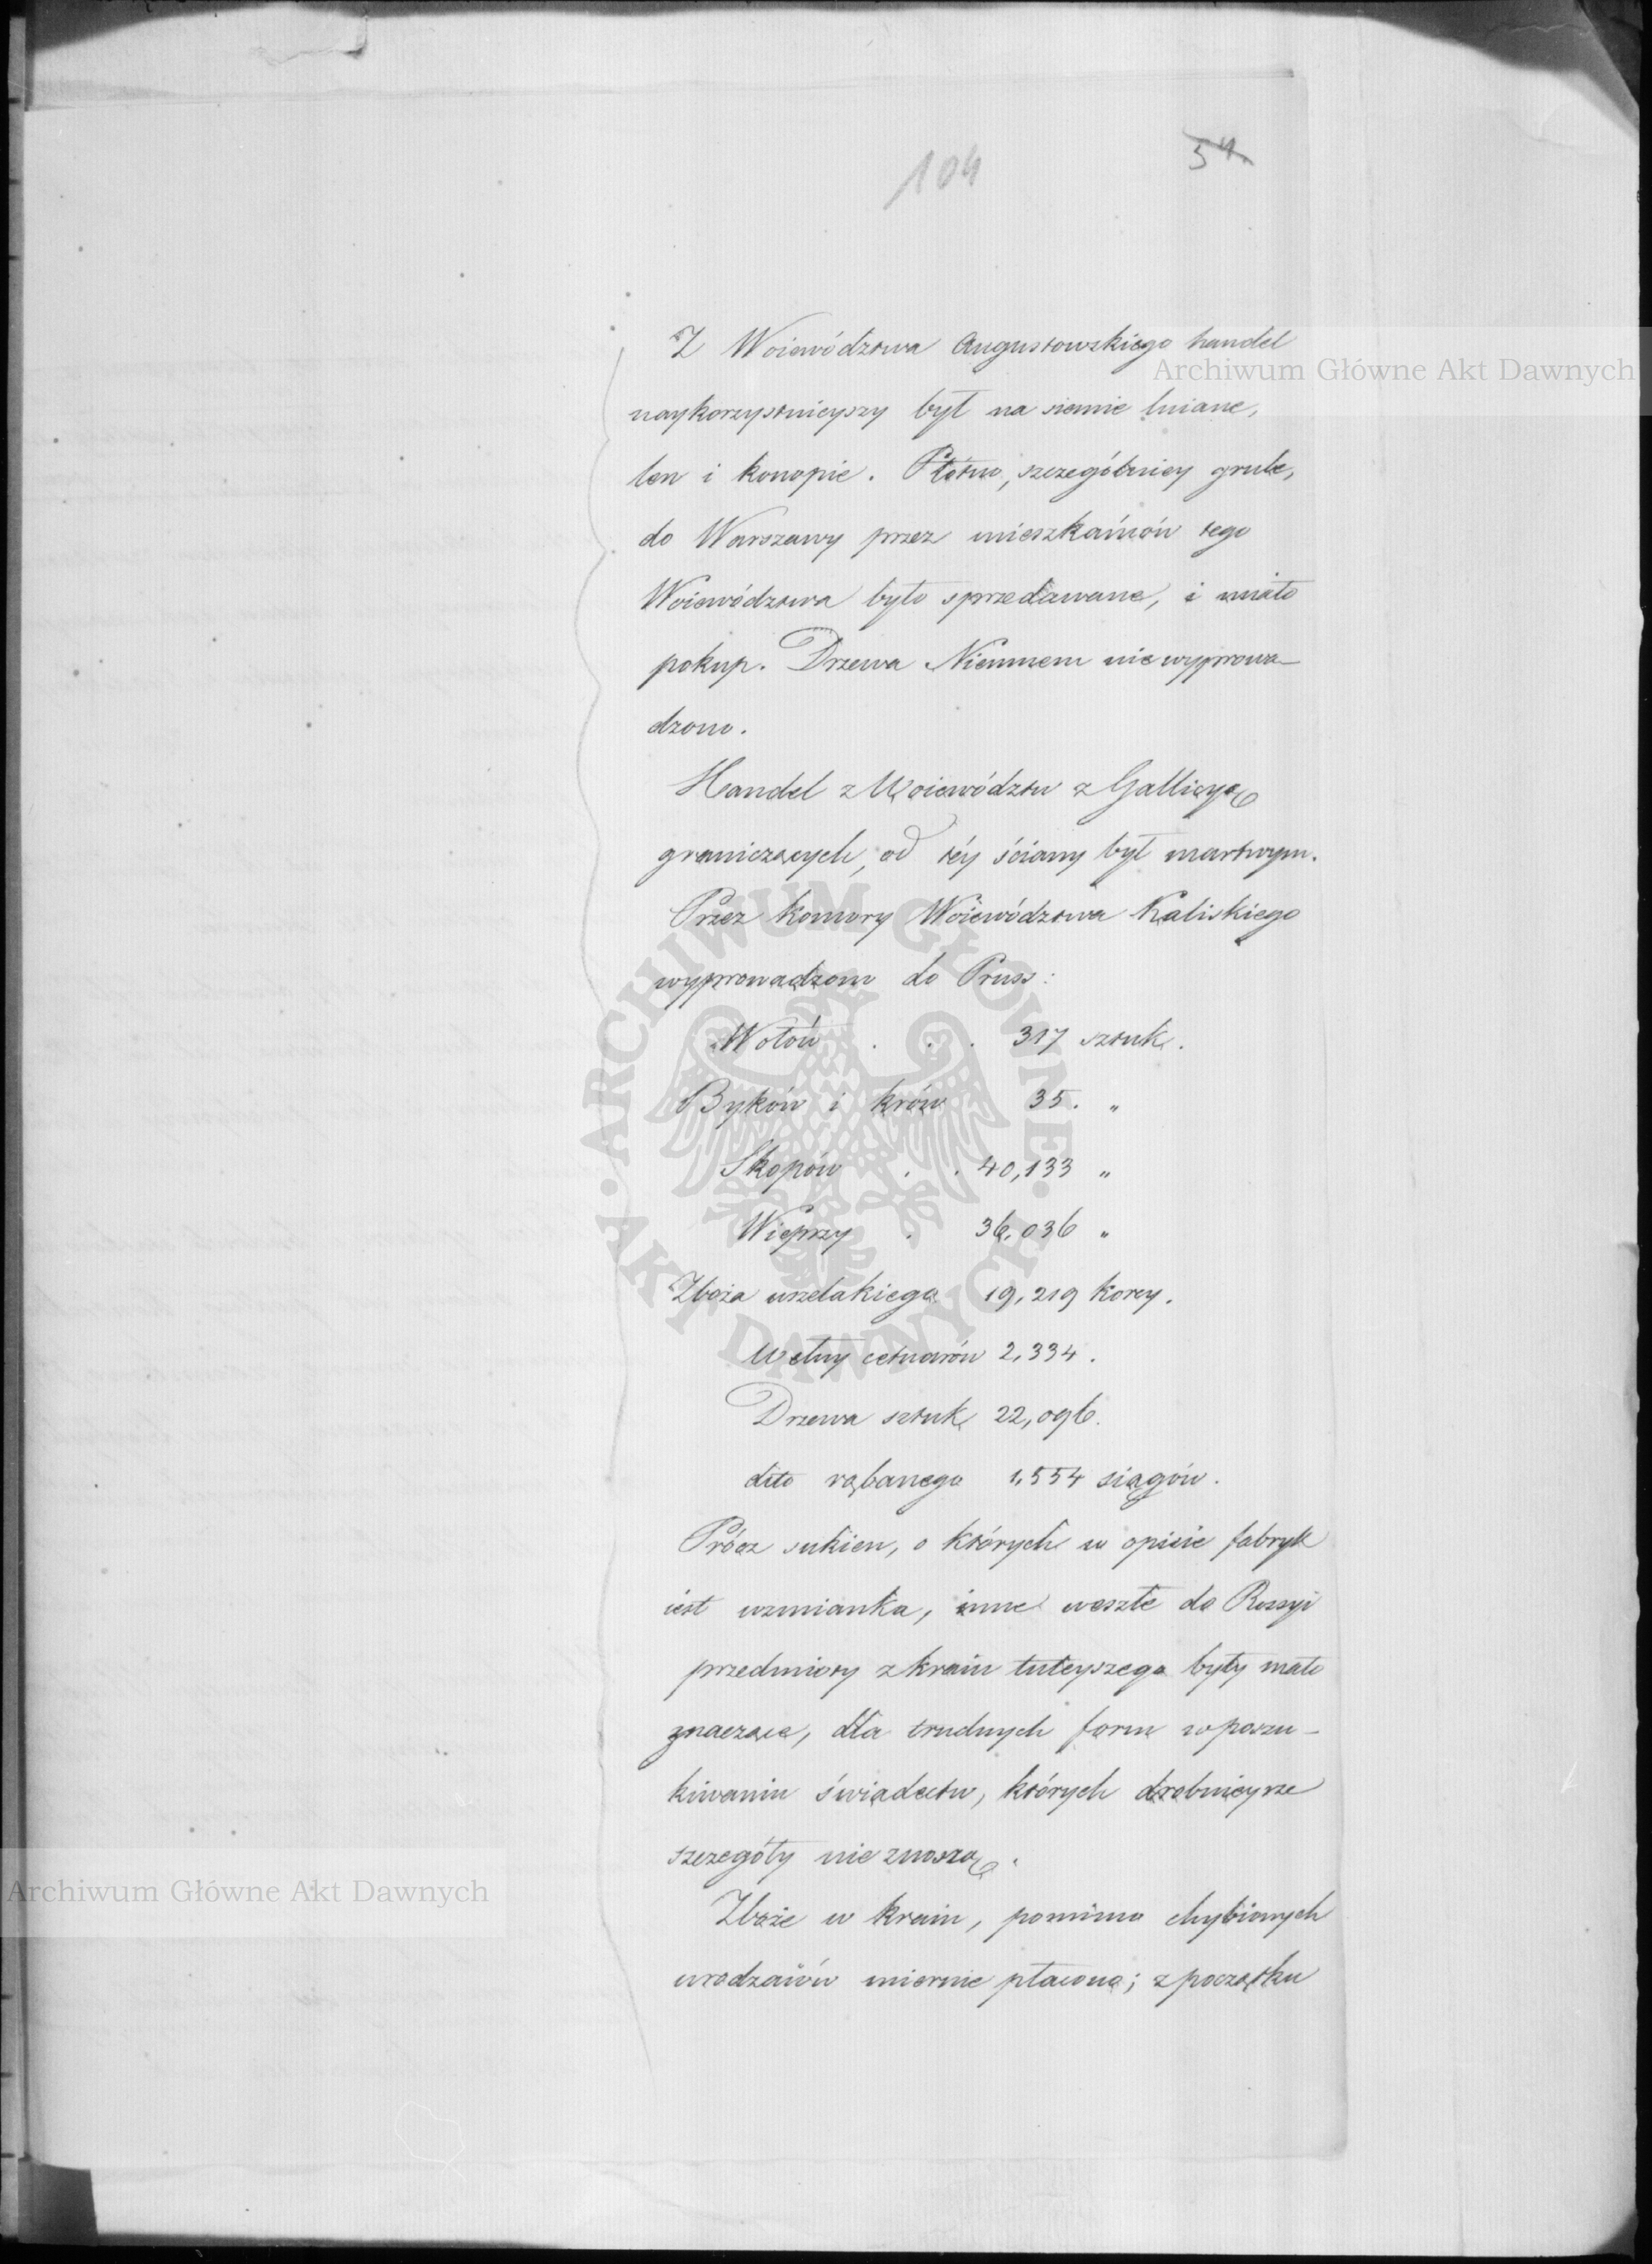 104
54.
Z Woiewództwa Augustowskiego handel
naykorzystnieyszy był na siemie lniane,
len i konopie. Płótno, szczególniey grube,
do Warszawy przez mieszkańców tego
Woiewództwa było sprzedawane, i miało
pokup. Drzewa Niemnem nie wyprowa-
dzono.
Handel z Woiewództw z Gallicyą
graniczących, od téy ściany był martwym.
Przez komory Woiewództwa Kaliskiego
wyprowadzono do Pruss:
Wołów . . . 317 sztuk.
Byków i krów 35. "
Skopów . . 40,133 "
Wieprzy . 36,036 "
Zboża wszelakiego 19,219 korcy.
Wełny cetnarów 2,334.
Drzewa sztuk 22,096.
dito rąbanego 1,554 siągów.
Prócz sukien, o których w opisie fabryk
iest wzmianka, inne weszłe do Rossyi
przedmioty z kraiu tuteyszego były mało
znaczące, dla trudnych form w poszu-
kiwaniu świadectw, których drobnieysze
szczegóły nie znoszą.
Zboże w kraiu, pomimo chybionych
urodzaiów miernie płacono; z początku
Archiwum Główne Akt Dawnych
Archiwum Główne Akt Dawnych
ARCHIWUM GŁÓWNE · AKT DAWNYCH ·